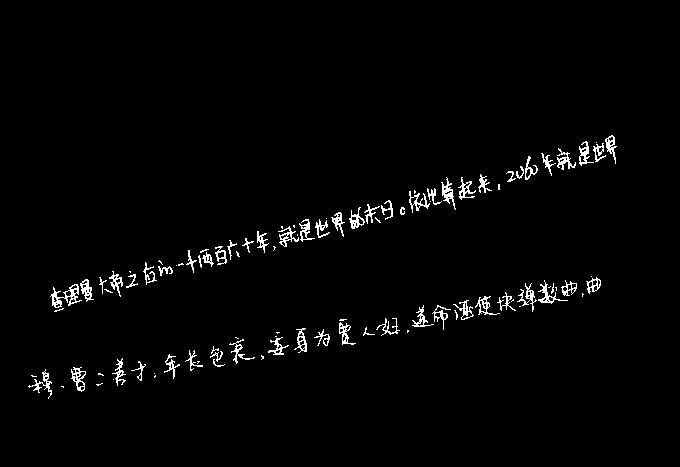 查理曼大帝之后的一千两百六十年,就是世界的末日。依此算起来,2060年就是世界
穆、曹二善才,年长色衰,委身为贾人妇,遂命酒使快弹数曲,曲